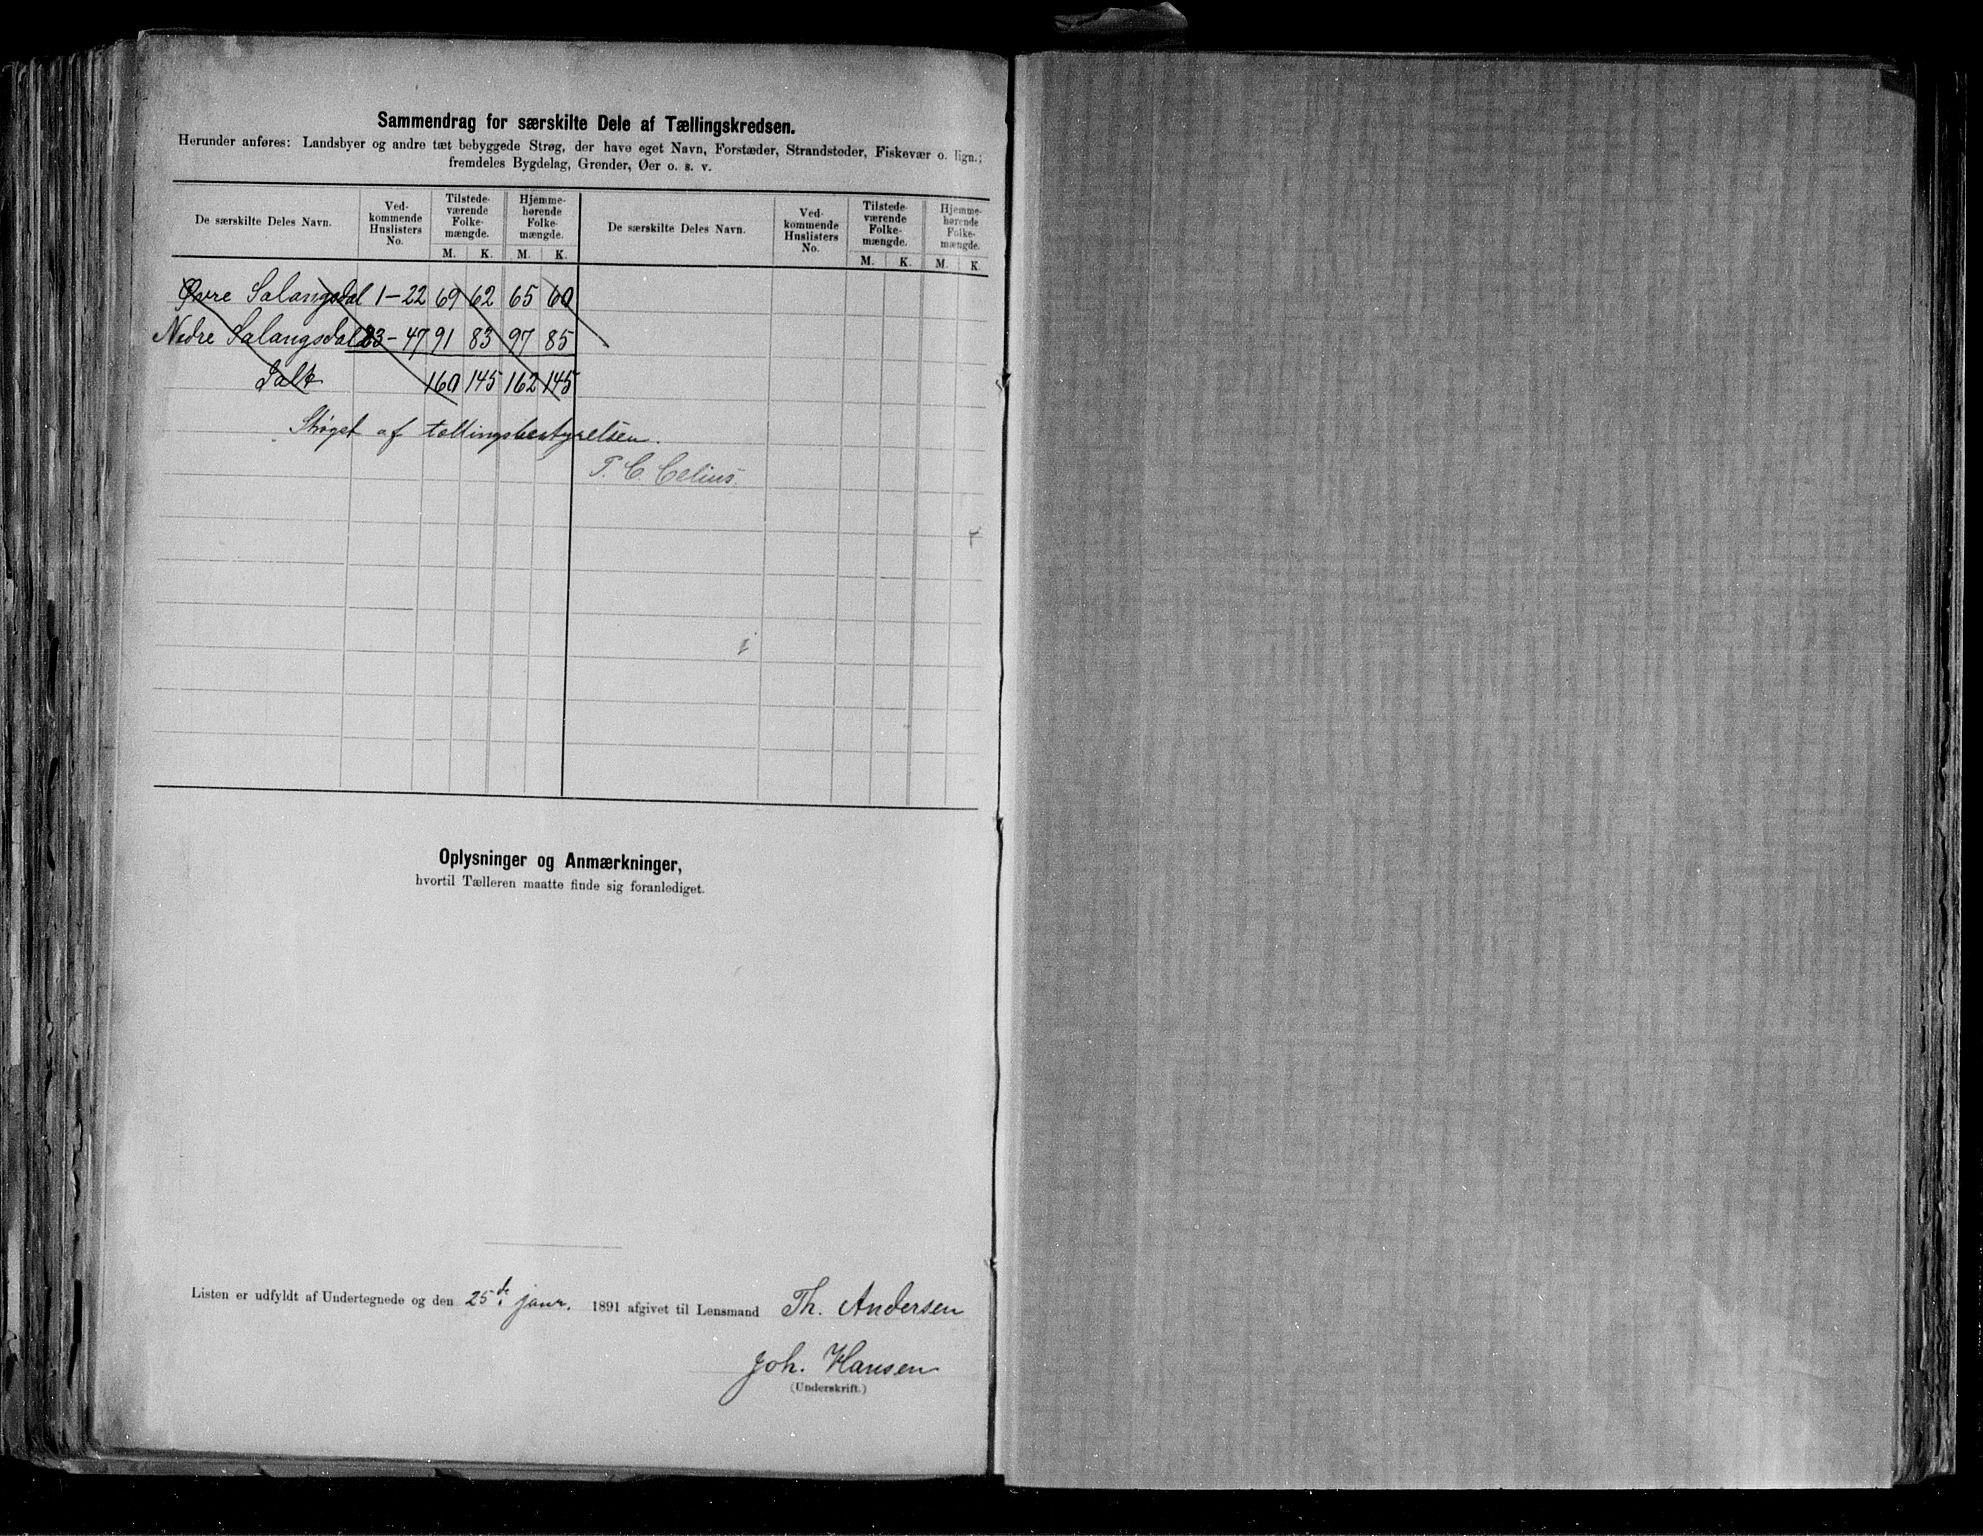 Sammendrag for særskilte Dele af Tællingskredsen.
Herunder anføres: Landsbyer og andre tæt bebyggede Strøg, der have eget Navn, Forstæder, Strandsteder, Fiskevær o. lign.;
fremdeles Bygdelag, Grender, Øer o. s. v.
De særskilte Deles Navn. Ved-kommende Huslisters No. Tilstede-værende Folke-mængde. Hjemme-hørende Folke-mængde. De særskilte Deles Navn. Ved-kommende Huslisters No. Tilstede-værende Folke-mængde. Hjemme-hørende Folke-mængde.
M. K. M. K. M. K. M. K.
Øvre Salangsdal 1-22 69 62 65 60
Nedre Salangsdal 23-47 91 83 97 85
160 145 162 145
Strøget af tællingsbestyrelsen.
T. C. Celius.
Oplysninger og Anmærkninger,
hvortil Tælleren maatte finde sig foranlediget.
Listen er udfyldt af Undertegnede og den 25de janr. 1891 afgivet til Lensmand Th. Andersen
Joh. Hansen
(Underskrift.)